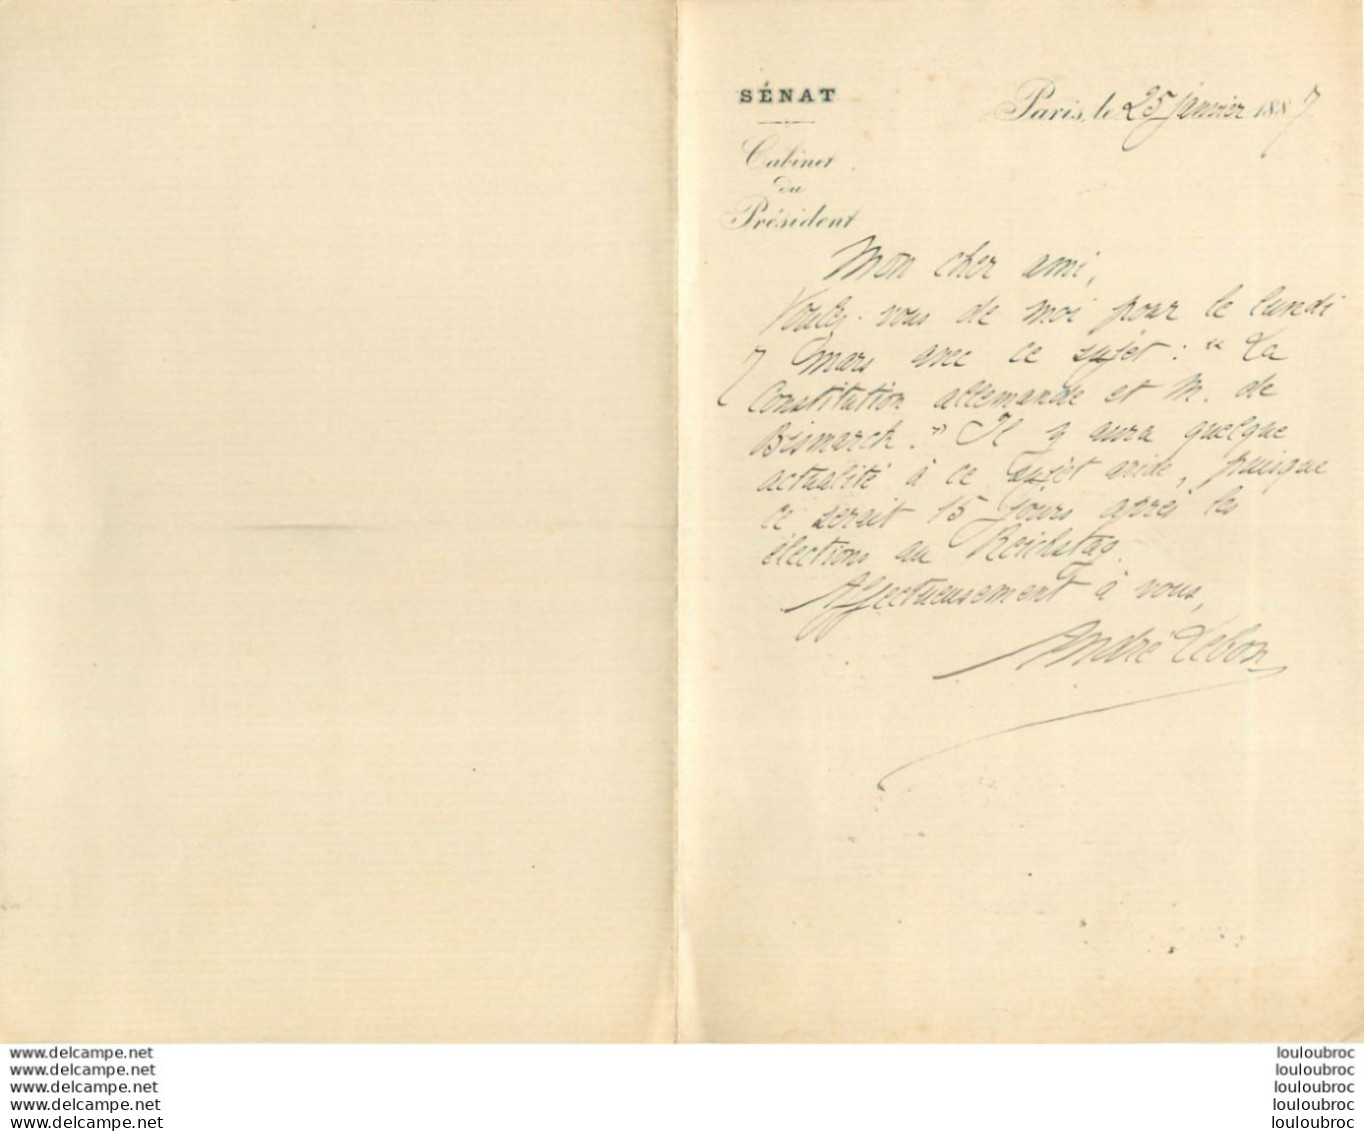 SÉNAT
Cabinet
du
Président
Paris, le 25 janvier 1887
Mon cher ami,
Voulez-vous de moi pour le lundi
7 mars avec ce sujet : "La
Constitution allemande et M. de
Bismarck." Il y aura quelque
actualité à ce sujet aride, puisque
ce serait 15 jours après les
élections au Reichstag.
Affectueusement à vous,
André Lebon
www.delcampe.net
www.delcampe.net
www.delcampe.net
www.delcampe.net
www.delcampe.net
louloubroc
louloubroc
louloubroc
louloubroc
louloubroc